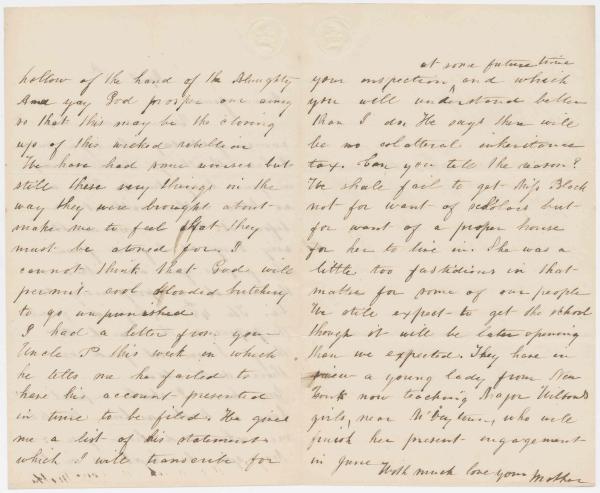 hollow of the hand of the Almighty
And pay God prosper our army
so that this may be the closing
up of this wicked rebellion
We have had some reverses but
still these very things in the
way they were brought about
make me to feel that they
must be atoned for. I
cannot think that God will
permit cool blooded butchery
to go unpunished
I had a letter from your
Uncle P this week in which
he tells me he failed to
have his account presented
in time to be filed. He gives
me a list of his statement
which I will transcribe for
at some future time
your inspection and which
you will understand better
than I do. He says there will
be no colatteral inheritance
tax. Can you tell the reason?
We shall fail to get Miss Black
not for want of scholars but
for want of a proper house
for her to live in. She was a
little too fastidious in that
matter for some of our people
We still expect to get the school
though it will be later opening
than we expected. They have in
view a young lady from New
York now teaching Major Wilsons
girls, near who will
finish her present engagement
in June
With much love your Mother